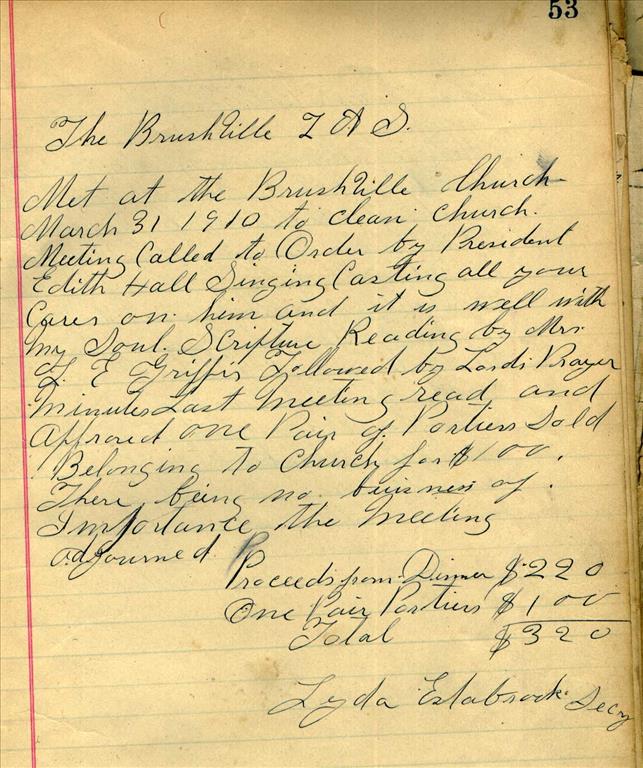 53
The Brushville L A S.
Met at the Brushville Church
March 31 1910 to clean church.
Meeting Called to Order by President
Edith Hall Singing Casting all your
Cares on him and it is well with
my Soul. Scripture Reading by Mrs.
L E Griffis Followed by Lords Prayer
Minutes Last Meeting read and
Approved one Pair of Portiers Sold
Belonging to Church for $1 00.
There being no buisness of
Importance the Meeting
adjourned.
Proceeds from Dinner $2 20
One Pair Portiers $1 00
Total $3 20
Lyda Estabrook Secy